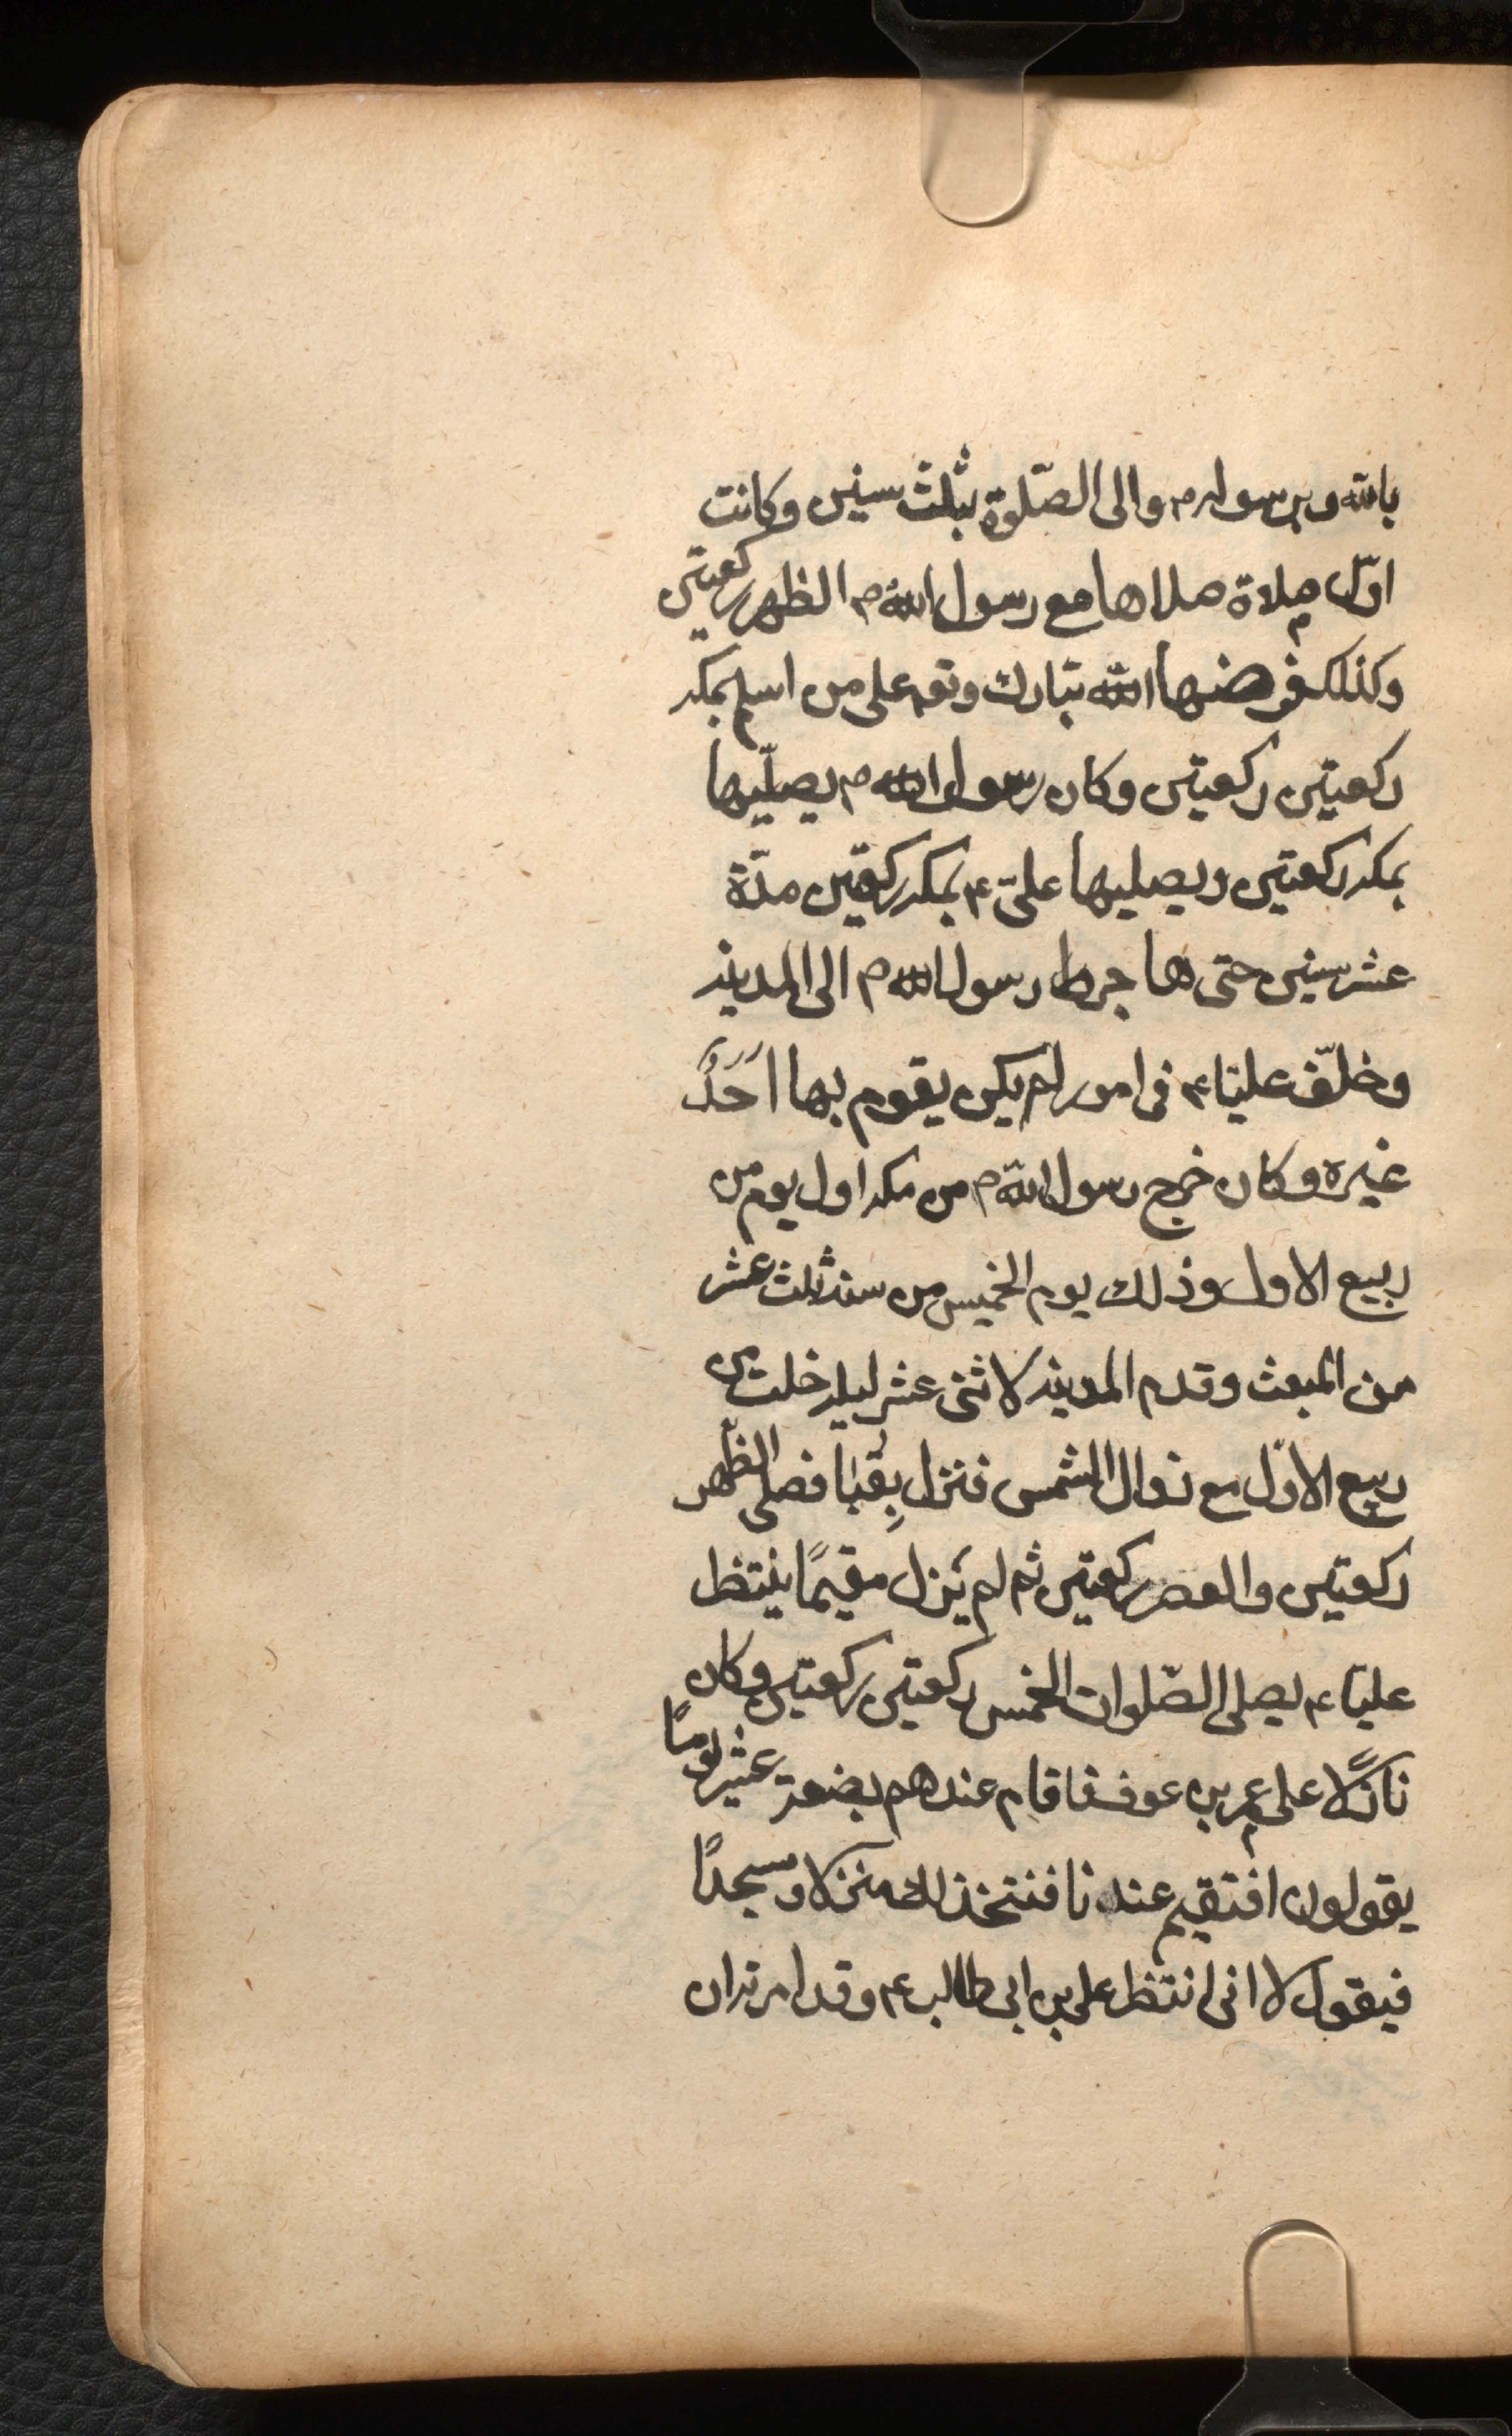 بالله وبرسوله ص والى الصّلوة بثلث سنين وكانت
اوّل صلاة صلاها مع رسول الله ص الظهر ركعتين
وكذلك فرضها الله تبارك وتعه على من اسلم بمكه
ركعتين ركعتين وكان رسول الله ص يصلّيها
بمكه ركعتين ويصليها علىّ ع بمكه ركعتين مدّة
عشر سنين حتى هاجر رسول الله ص الى المدينه
وخلّف عليّا ع فى امور لم يكن يقوم بها اَحَدٌ
غيره وكان خرج رسول الله ص من مكه اول يوم من
ربيع الاول وذلك يوم الخميس من سنه ثلث عشر
من المبعث وقدم المدينه لاثنى عشر ليله خلت من
ربيع الاوّل مع زوال الشمس فنزل بِقُبا فصلى الظّهر
ركعتين والعصر ركعتين ثم لم يَزل مقيمًا ينتظر
عليّا ع يصلى الصّلوات الخمس ركعتين ركعتين وكان
نازلًا على عمر بن عوف فاقام عندهم بضعة عشر يومًا
يقولون افتقيم عندنا فنتخذ لك منزلا ومسجدًا
فيقول لا انى انتظر على بن ابى طالب ع وقد امرته ان